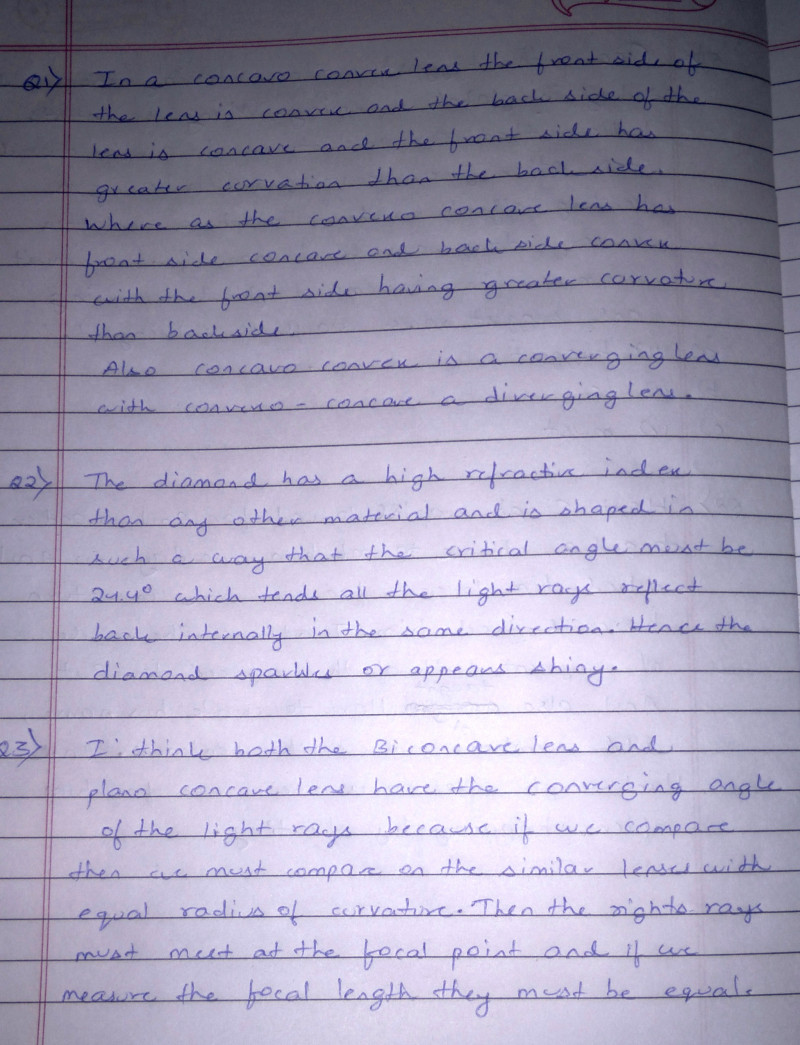 Q1) In a concavo convex lens the front side of
the lens is convex and the back side of the
lens is concave and the front side has
greater corvation than the back side.
Where as the convexo concave lens has
front side concave and back side convex
with the front side having greater corvature
than backside.
Also concavo convex is a converging lens
with convexo - concave a diverging lens.
Q2) The diamond has a high refractive index
than any other material and is shaped in
such a way that the critical angle must be
24.4° which tends all the light rays reflect
back internally in the same direction. Hence the
diamond sparkles or appears shiny.
Q3) I think both the Biconcave lens and
plano concave lens have the converging angle
of the light rays because if we compare
then we must compare on the similar lenses with
equal radius of curvature. Then the rights rays
must meet at the focal point and if we
measure the focal length they must be equal.